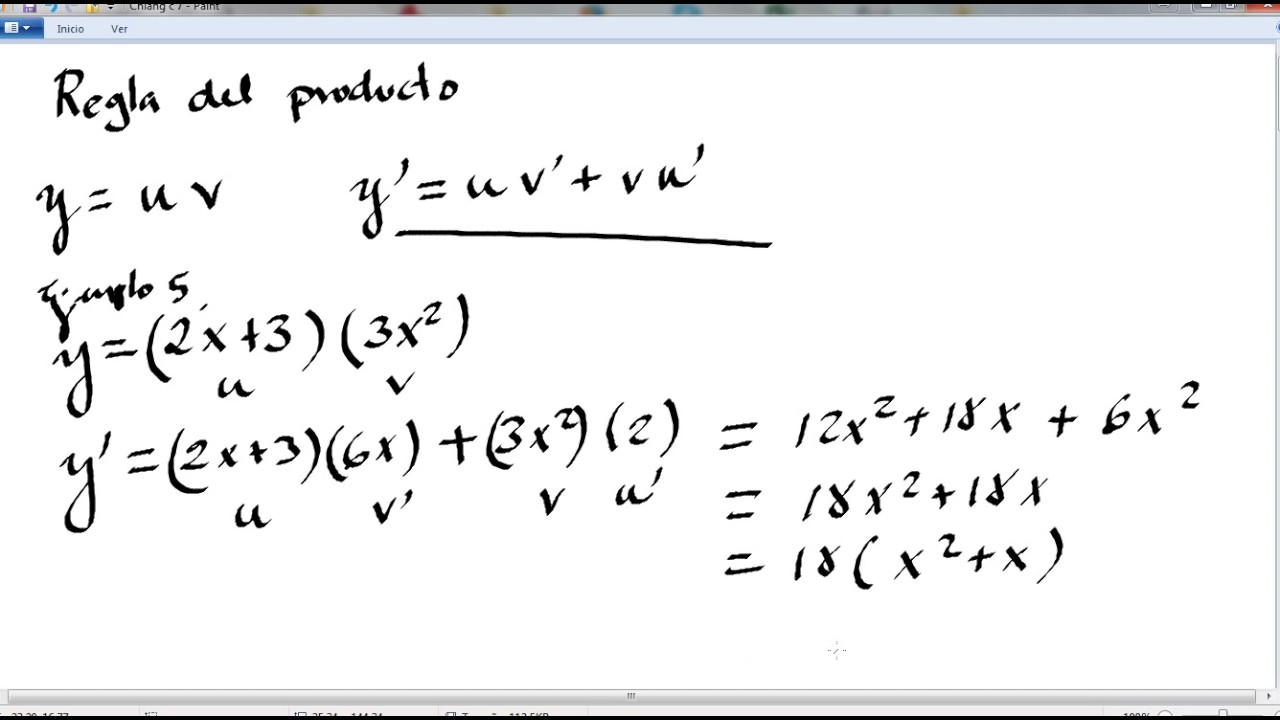 Chiang c 7 - Paint
Inicio Ver
Regla del producto
y = u v y' = u v' + v u'
Ejemplo 5
y = (2x+3)(3x²)
u v
y' = (2x+3)(6x) + (3x²)(2) = 12x² + 18x + 6x²
u v' v u'
= 18x² + 18x
= 18(x² + x)